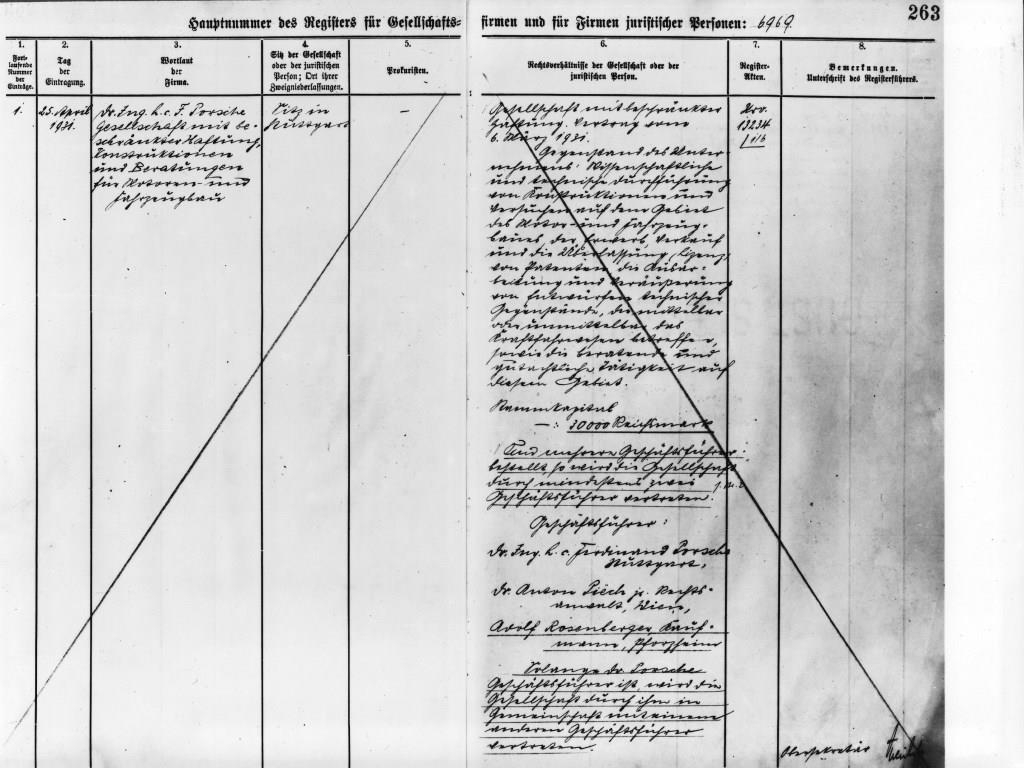 263
Hauptnummer des Registers für Gesellschafts- firmen und für Firmen juristischer Personen: 6969.
1.
Fort-
laufende
Nummer
der
Einträge.
2.
Tag
der
Eintragung.
3.
Wortlaut
der
Firma.
4.
Sitz der Gesellschaft
oder der juristischen
Person; Ort ihrer
Zweigniederlassungen.
5.
Prokuristen.
6.
Rechtsverhältnisse der Gesellschaft oder der
juristischen Person.
7.
Register-
Akten.
8.
Bemerkungen.
Unterschrift des Registerführers.
1.
25. April
1931.
Dr. Ing. h. c. F. Porsche
Gesellschaft mit be-
schränkter Haftung,
Konstruktionen
und Beratungen
für Motoren- und
Fahrzeugbau
Sitz in
Stuttgart
—
Gesellschaft mit beschränkter
Haftung. Vertrag vom
6. März 1931.
Gegenstand des Unter-
nehmens: Wissenschaftliche
und technische Durchführung
von Konstruktionen und
Versuchen auf dem Gebiet
des Motor- und Fahrzeug-
baues, der Erwerb, Verkauf
und die Überlassung
von Patenten, die Ausar-
beitung und Veräußerung
von Entwürfen technischer
Gegenstände, die mittelbar
oder unmittelbar das
Kraftfahrwesen betreffen,
sowie die beratende und
gutachtliche Tätigkeit auf
diesem Gebiet.
Stammkapital
—: 30000 Reichsmark
Sind mehrere Geschäftsführer
bestellt, so wird die Gesellschaft
durch mindestens zwei
Geschäftsführer vertreten.
Geschäftsführer:
Dr. Ing. h. c. Ferdinand Porsche
Stuttgart,
Dr. Anton Piech jr. Rechts-
anwalt, Wien,
Adolf Rosenberger, Kauf-
mann, Pforzheim
Solange Dr. Porsche
Geschäftsführer ist, wird die
Gesellschaft durch ihn in
Gemeinschaft mit einem
anderen Geschäftsführer
vertreten.
13234
Obersekretär